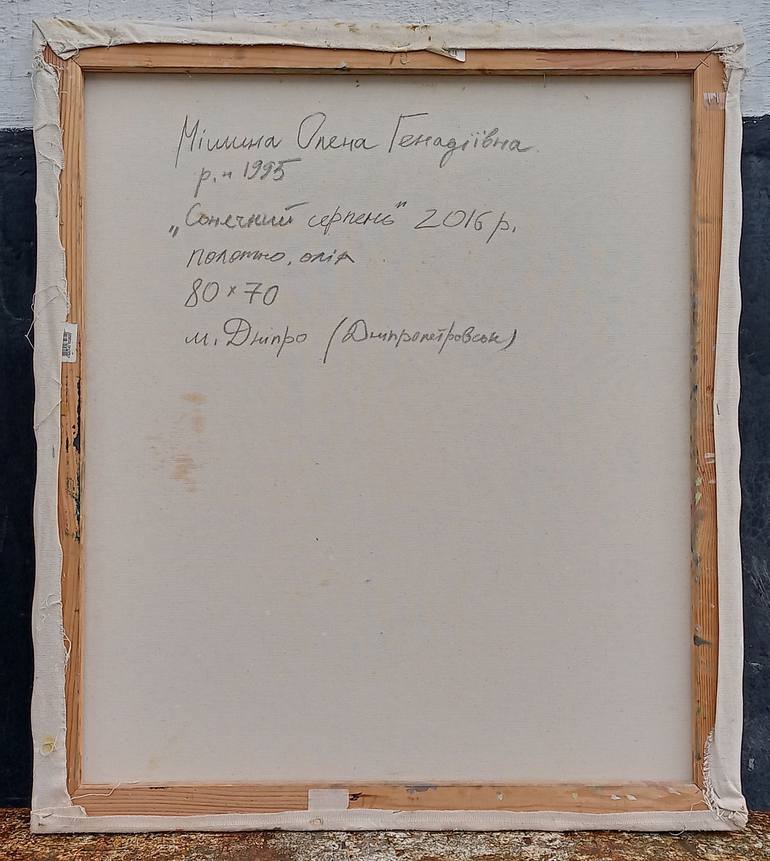 Мілшина Олена Генадіївна
р.н 1995
„Сонячний серпень" 2016 р.
полотно, олія
80 × 70
м. Дніпро (Дніпропетровськ)